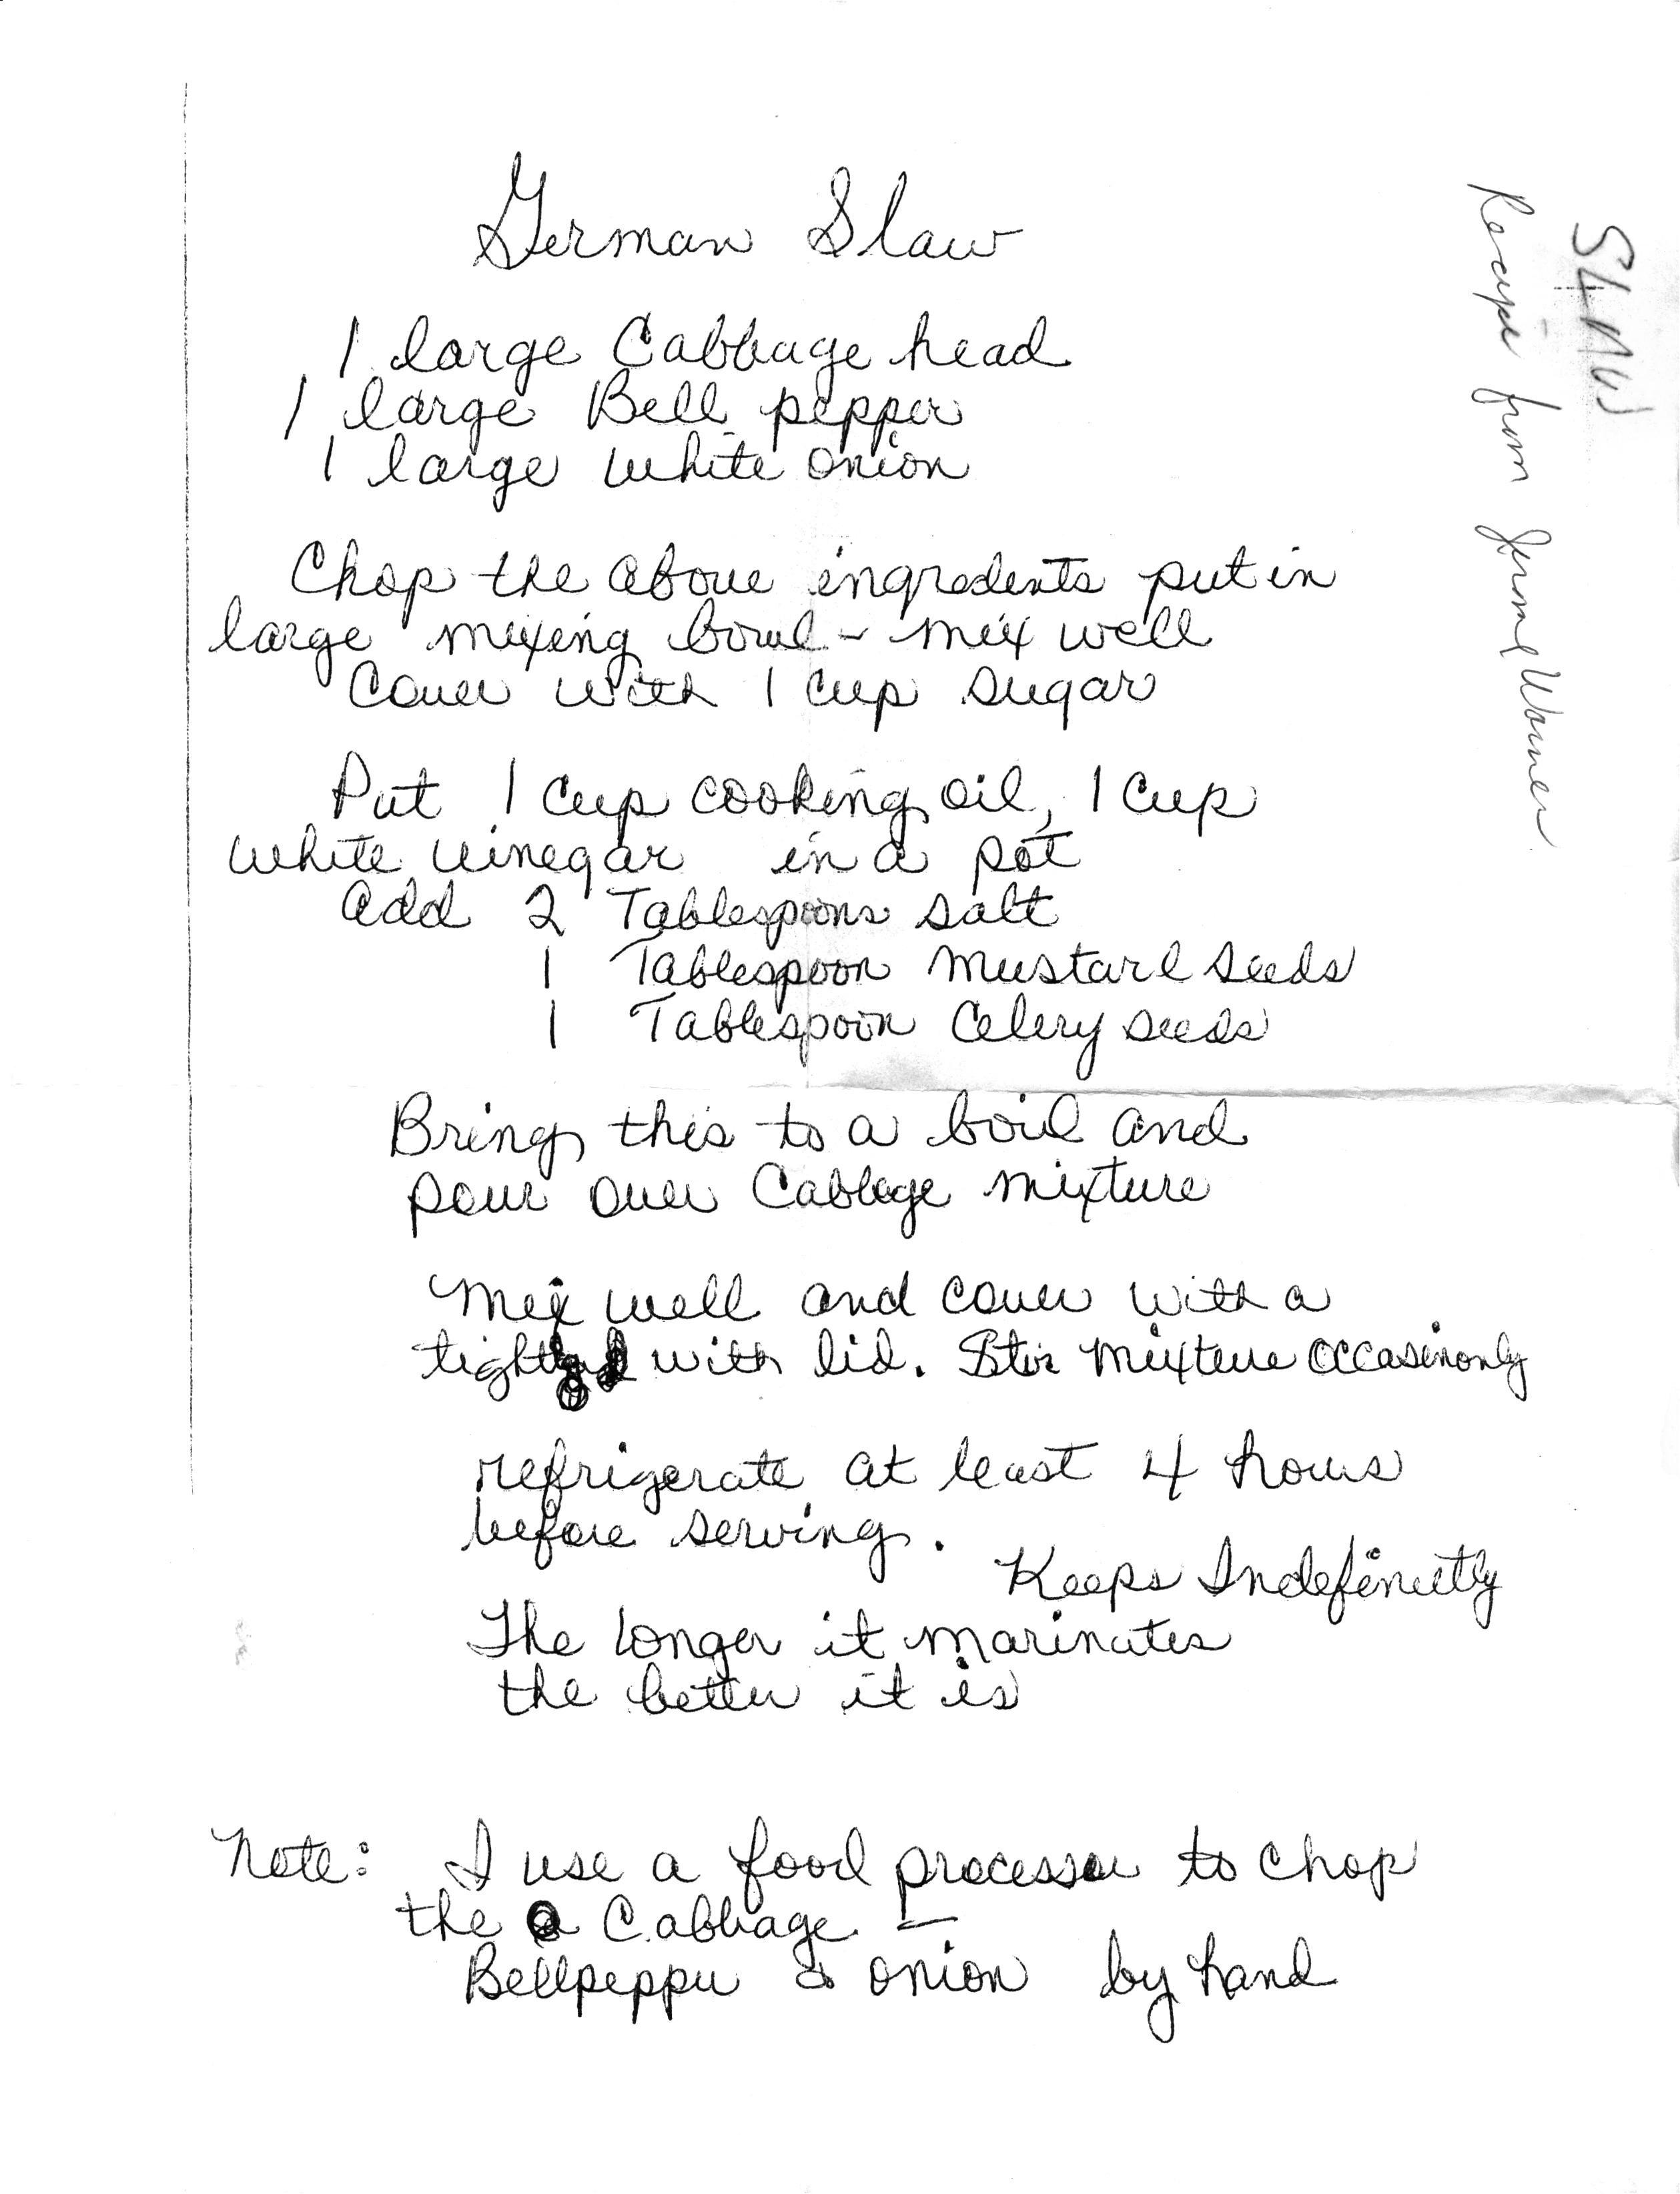 German Slaw
1 large Cabbage head
1 large Bell pepper
1 large white onion
Chop the above ingredents put in
large mixing bowl - mix well
Cover with 1 cup sugar
Put 1 cup cooking oil, 1 cup
white vinegar in a pot
add 2 Tablespoons salt
1 Tablespoon Mustard seeds
1 Tablespoon Celery seeds
Bring this to a boil and
pour over Cabbage mixture
Mix well and cover with a
with lid. Stir mixture occasinonly
refrigerate at least 4 hours
before serving.
Keeps Indefinetly
The longer it marinates
the better it is
Note: I use a food processor to chop
the Cabbage -
Bellpepper & onion by hand
SLAW
Recipe from